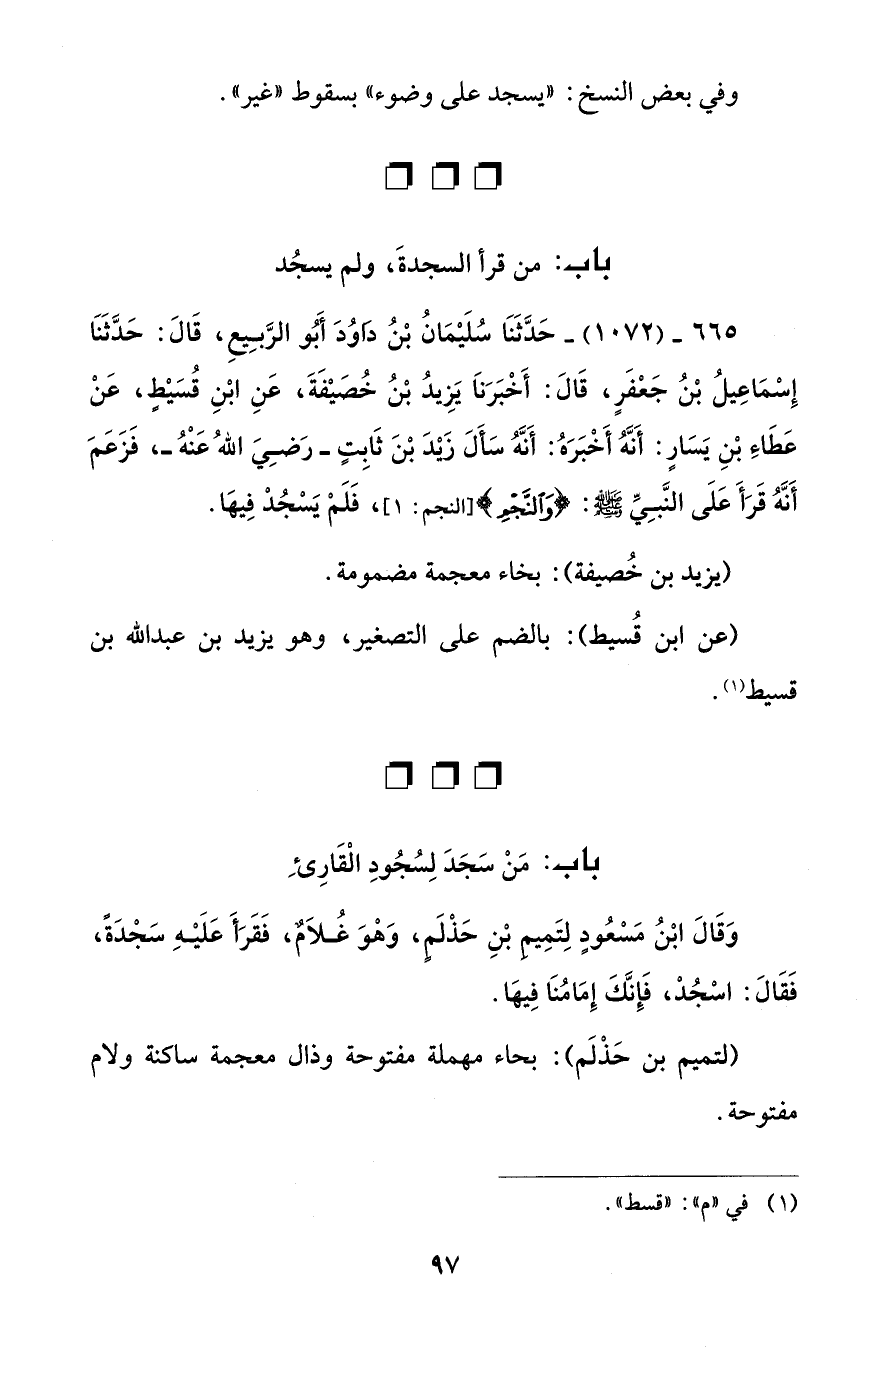 وفي بعض النسخ: «يسجد على وضوء» بسقوط «غير».
باب: من قرأ السجدةَ، ولم يسجُد
٦٦٥ ـ (١٠٧٢) ـ حَدَّثَنَا سُلَيْمَانُ بْنُ دَاوُدَ أَبُو الرَّبِيعِ، قَالَ: حَدَّثَنَا
إِسْمَاعِيلُ بْنُ جَعْفَرٍ، قَالَ: أَخْبَرَنَا يَزِيدُ بْنُ خُصَيْفَةَ، عَنِ ابْنِ قُسَيْطٍ، عَنْ
عَطَاءِ بْنِ يَسَارٍ: أَنَّهُ أَخْبَرَهُ: أَنَّهُ سَأَلَ زَيْدَ بْنَ ثَابِتٍ ـ رَضِيَ اللهُ عَنْهُ ـ، فَزَعَمَ
أَنَّهُ قَرَأَ عَلَى النَّبِيِّ ﷺ: ﴿وَٱلنَّجْمِ﴾[النجم: ١]، فَلَمْ يَسْجُدْ فِيهَا.
(يزيد بن خُصيفة): بخاء معجمة مضمومة.
(عن ابن قُسيط): بالضم على التصغير، وهو يزيد بن عبدالله بن
قسيط(١).
باب: مَنْ سَجَدَ لِسُجُودِ الْقَارِئِ
وَقَالَ ابْنُ مَسْعُودٍ لِتَمِيمِ بْنِ حَذْلَمٍ، وَهْوَ غُلاَمٌ، فَقَرَأَ عَلَيْهِ سَجْدَةً،
فَقَالَ: اسْجُدْ، فَإِنَّكَ إِمَامُنَا فِيهَا.
(لتميم بن حَذْلَم): بحاء مهملة مفتوحة وذال معجمة ساكنة ولام
مفتوحة.
(١) في «م»: «قسط».
٩٧